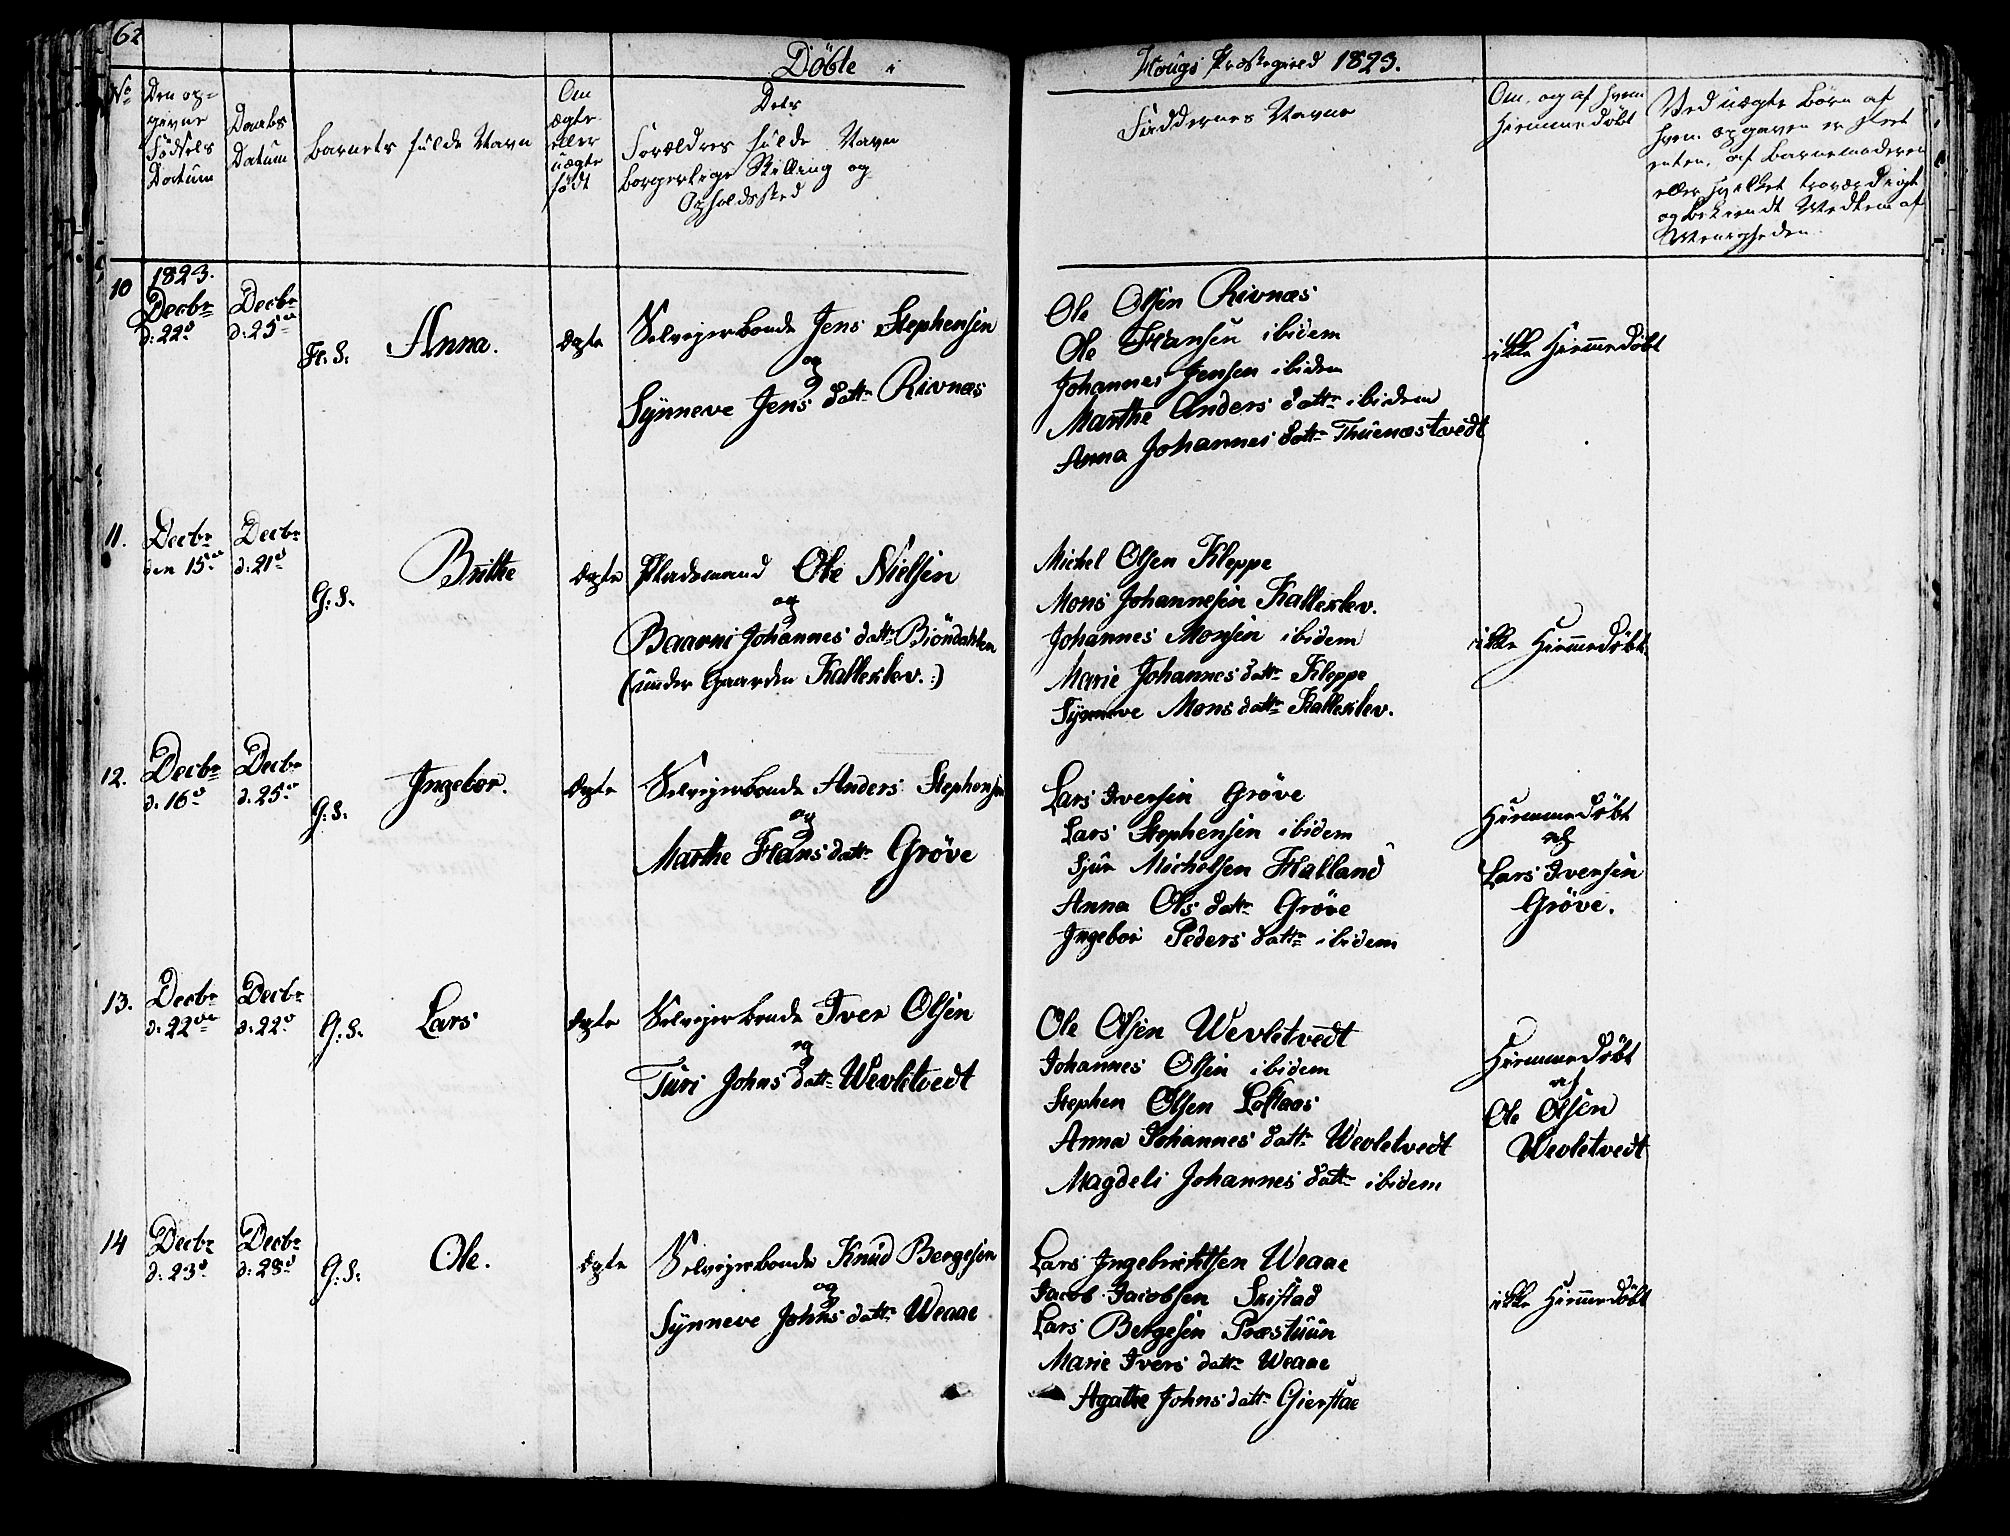 62
Döbte i Hougs Præstegield 1823.
No
Den op=
givne
Födsels
Datum
Daabs
Datum
Barnets fulde Navn
Om
ægte
eller
uægte
födt
Dets
Forældres fulde Navn
borgerlige Stilling og
Opholdssted
Faddernes Navne
Om, og af hvem
Hiemmedøbt
Ved uægte Börn af
hvem opgaven er skeet
enten, af Barnemoderen
eller hvilket troværdigt
og bekiendt Medlem af
Menigheden.
10
1823.
Decbr
d: 22d
Decbr
d: 25de
H: S:
Anna.
ægte
Selveierbonde Jens Stephensen
og
Synneve Jens dattr Rivnæs
Ole Olsen Rivnæs
Ole Hansen ibidem
Johannes Jensen ibidem
Marthe Anders dattr ibidem
Anna Johannes dattr Thuenæstvedt
ikke Hiemmedøbt
11.
Decbr
den 15de
Decbr
d: 21d
G: S.
Brithe
ægte
Pladsmand Ole Nielsen
og
Baarni Johannes dattr Biöndahlen
(under Gaarden Kalleklev.:)
Michel Olsen Kleppe
Mons Johannesen Kalleklev.
Johannes Monsen ibidem
Marie Johannes dattr Kleppe
Synneve Mons dattr Kalleklev.
ikke Hiemmedøbt.
12.
Decbr
d: 16d
Decbr
d: 25de
G: S.
Ingebor.
ægte
Selveierbonde Anders Stephensen
og
Marthe Hans dattr Gröve
Lars Iversen Gröve
Lars Stephensen ibidem
Sjur Michelsen Halland
Anna Ols dattr Gröve
Ingebor Peders dattr ibidem
Hiemmedøbt
af
Lars Iversen
Gröve.
13.
Decbr
d: 22de
Decbr
d: 22d
G: S.
Lars
ægte
Selveierbonde Iver Olsen
og
Turi Johns dattr Wevletvedt
Ole Olsen Wevletvedt
Johannes Olsen ibidem
Stephen Olsen Loftaas
Anna Johannes dattr Wevletvedt
Magdeli Johannes dattr ibidem
Hiemmedøbt
af
Ole Olsen
Wevletvedt
14
Decbr
d: 23d
Decbr
d: 28d
G: S:
Ole.
ægte
Selveierbonde Knud Bergesen
og
Synneve Johns dattr Weaae
Lars Ingebrichtsen Weaae
Jacob Jacobsen Skistad
Lars Bergesen Præstuun
Marie Ivers dattr Weaae
Agathe Johns dattr Gierstae
ikke Hiemmedøbt